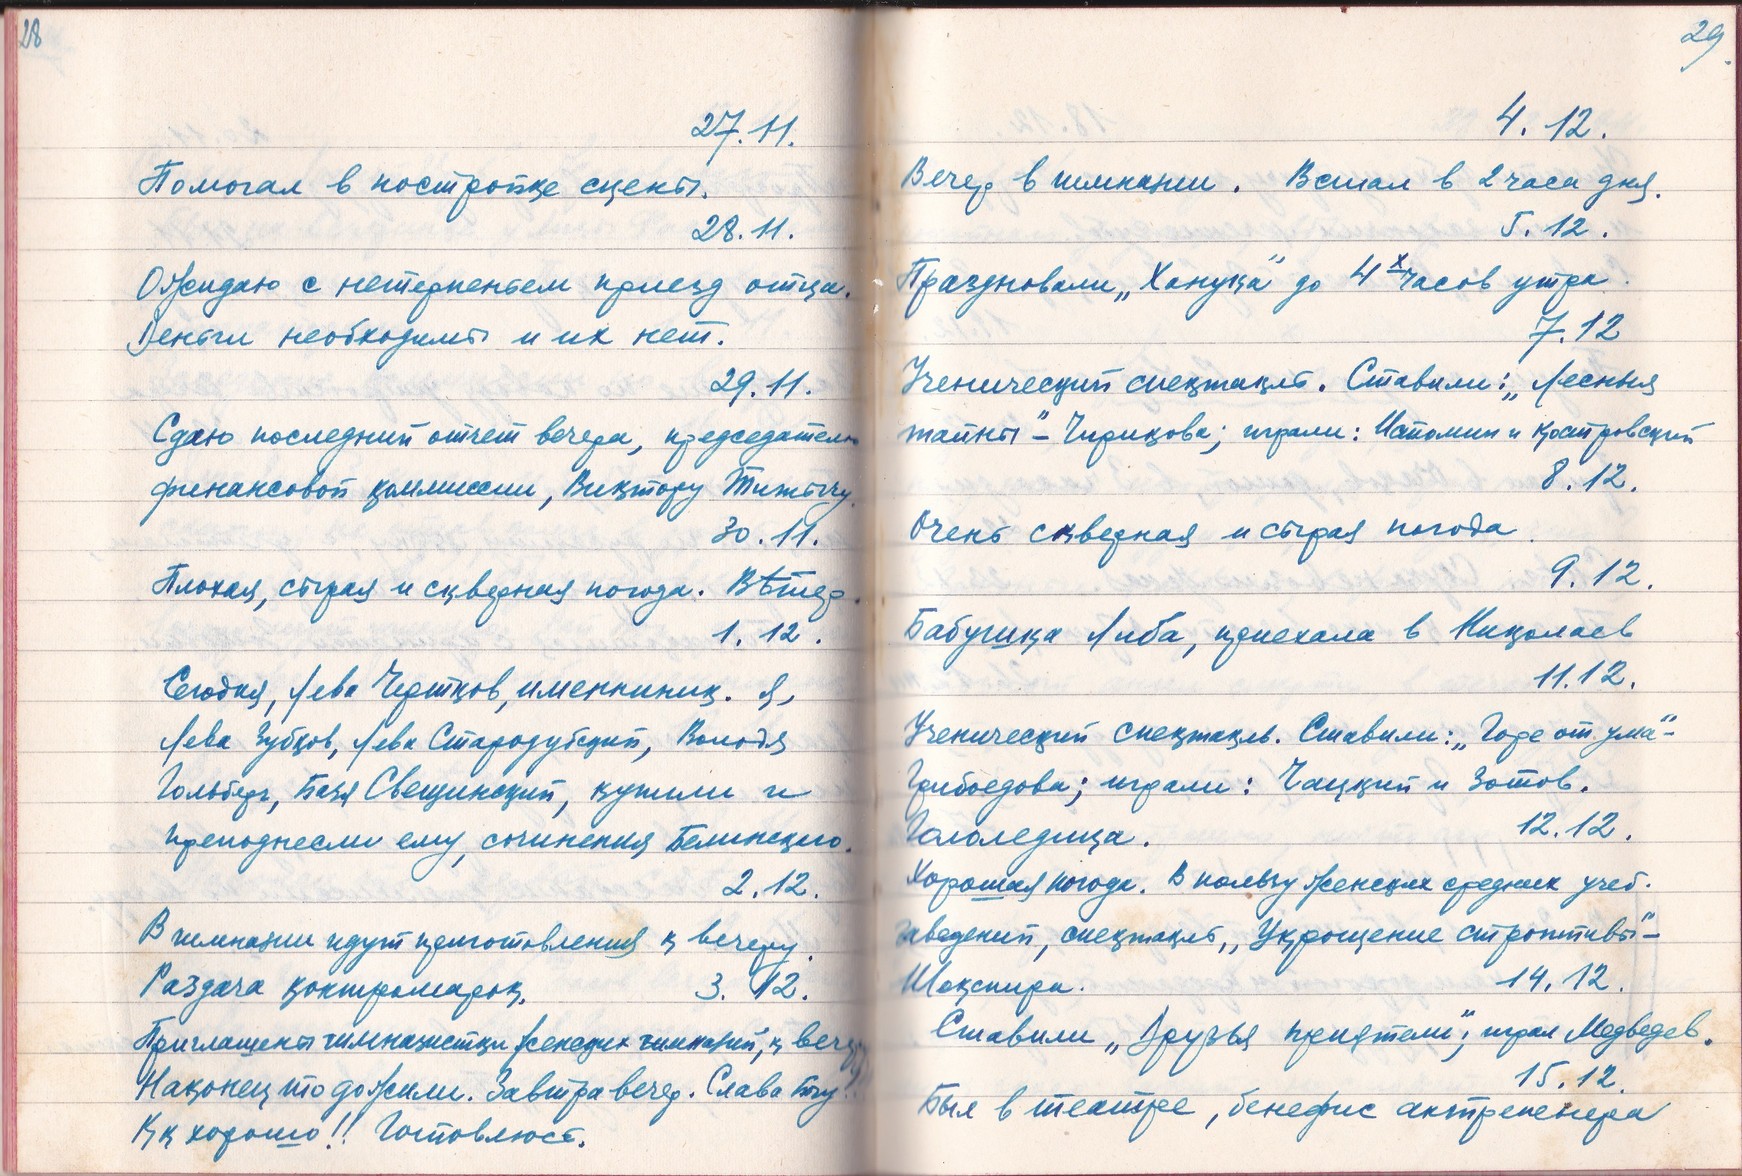 28
27.11.
Помогал в постройке сцены.
28.11.
Ожидаю с нетерпеньем приезд отца.
Деньги необходимы и их нет.
29.11.
Сдаю последний отчет вечера, председателю
финансовой коммиссии, Виктору
30.11.
Плохая, сырая и скверная погода. Вѣтер.
1.12.
Сегодня, Лева Чертков, именинник. Я,
Лева Зубков, Лева Стародубский, Володя
Гольберг, Базя Свещинский, купили и
преподнесли ему, сочинения Белинского.
2.12.
В гимназии идут приготовления к вечеру.
Раздача контромарок.
3.12.
Приглашены гимназистки женских гимназий, к вечеру
Наконец то дожили. Завтра вечер. Слава Богу!.
Кк хорошо!! Готовлюсь.
29.
4.12.
Вечер в гимназии. Встал в 2 часа дня.
5.12.
Праздновали „Ханука" до 4х часов утра.
7.12
Ученический спектакль. Ставили: „Лесныя
тайны" – Чирикова; играли: Истомин и Костровский
8.12.
Очень скверная и сырая погода.
9.12.
Бабушка Люба, приехала в Николаев
11.12.
Ученический спектакль. Ставили: „Горе от ума" –
Грибоедова; играли: Чацкий и Зотов.
Гололедица.
12.12.
Хорошая погода. В пользу женских средних учеб.
заведений, спектакль, „Укрощение строптивы" –
Шекспира.
14.12.
Ставили „Друзья приятели"; играл Медведев.
15.12.
Был в театре, бенефис антрепенера